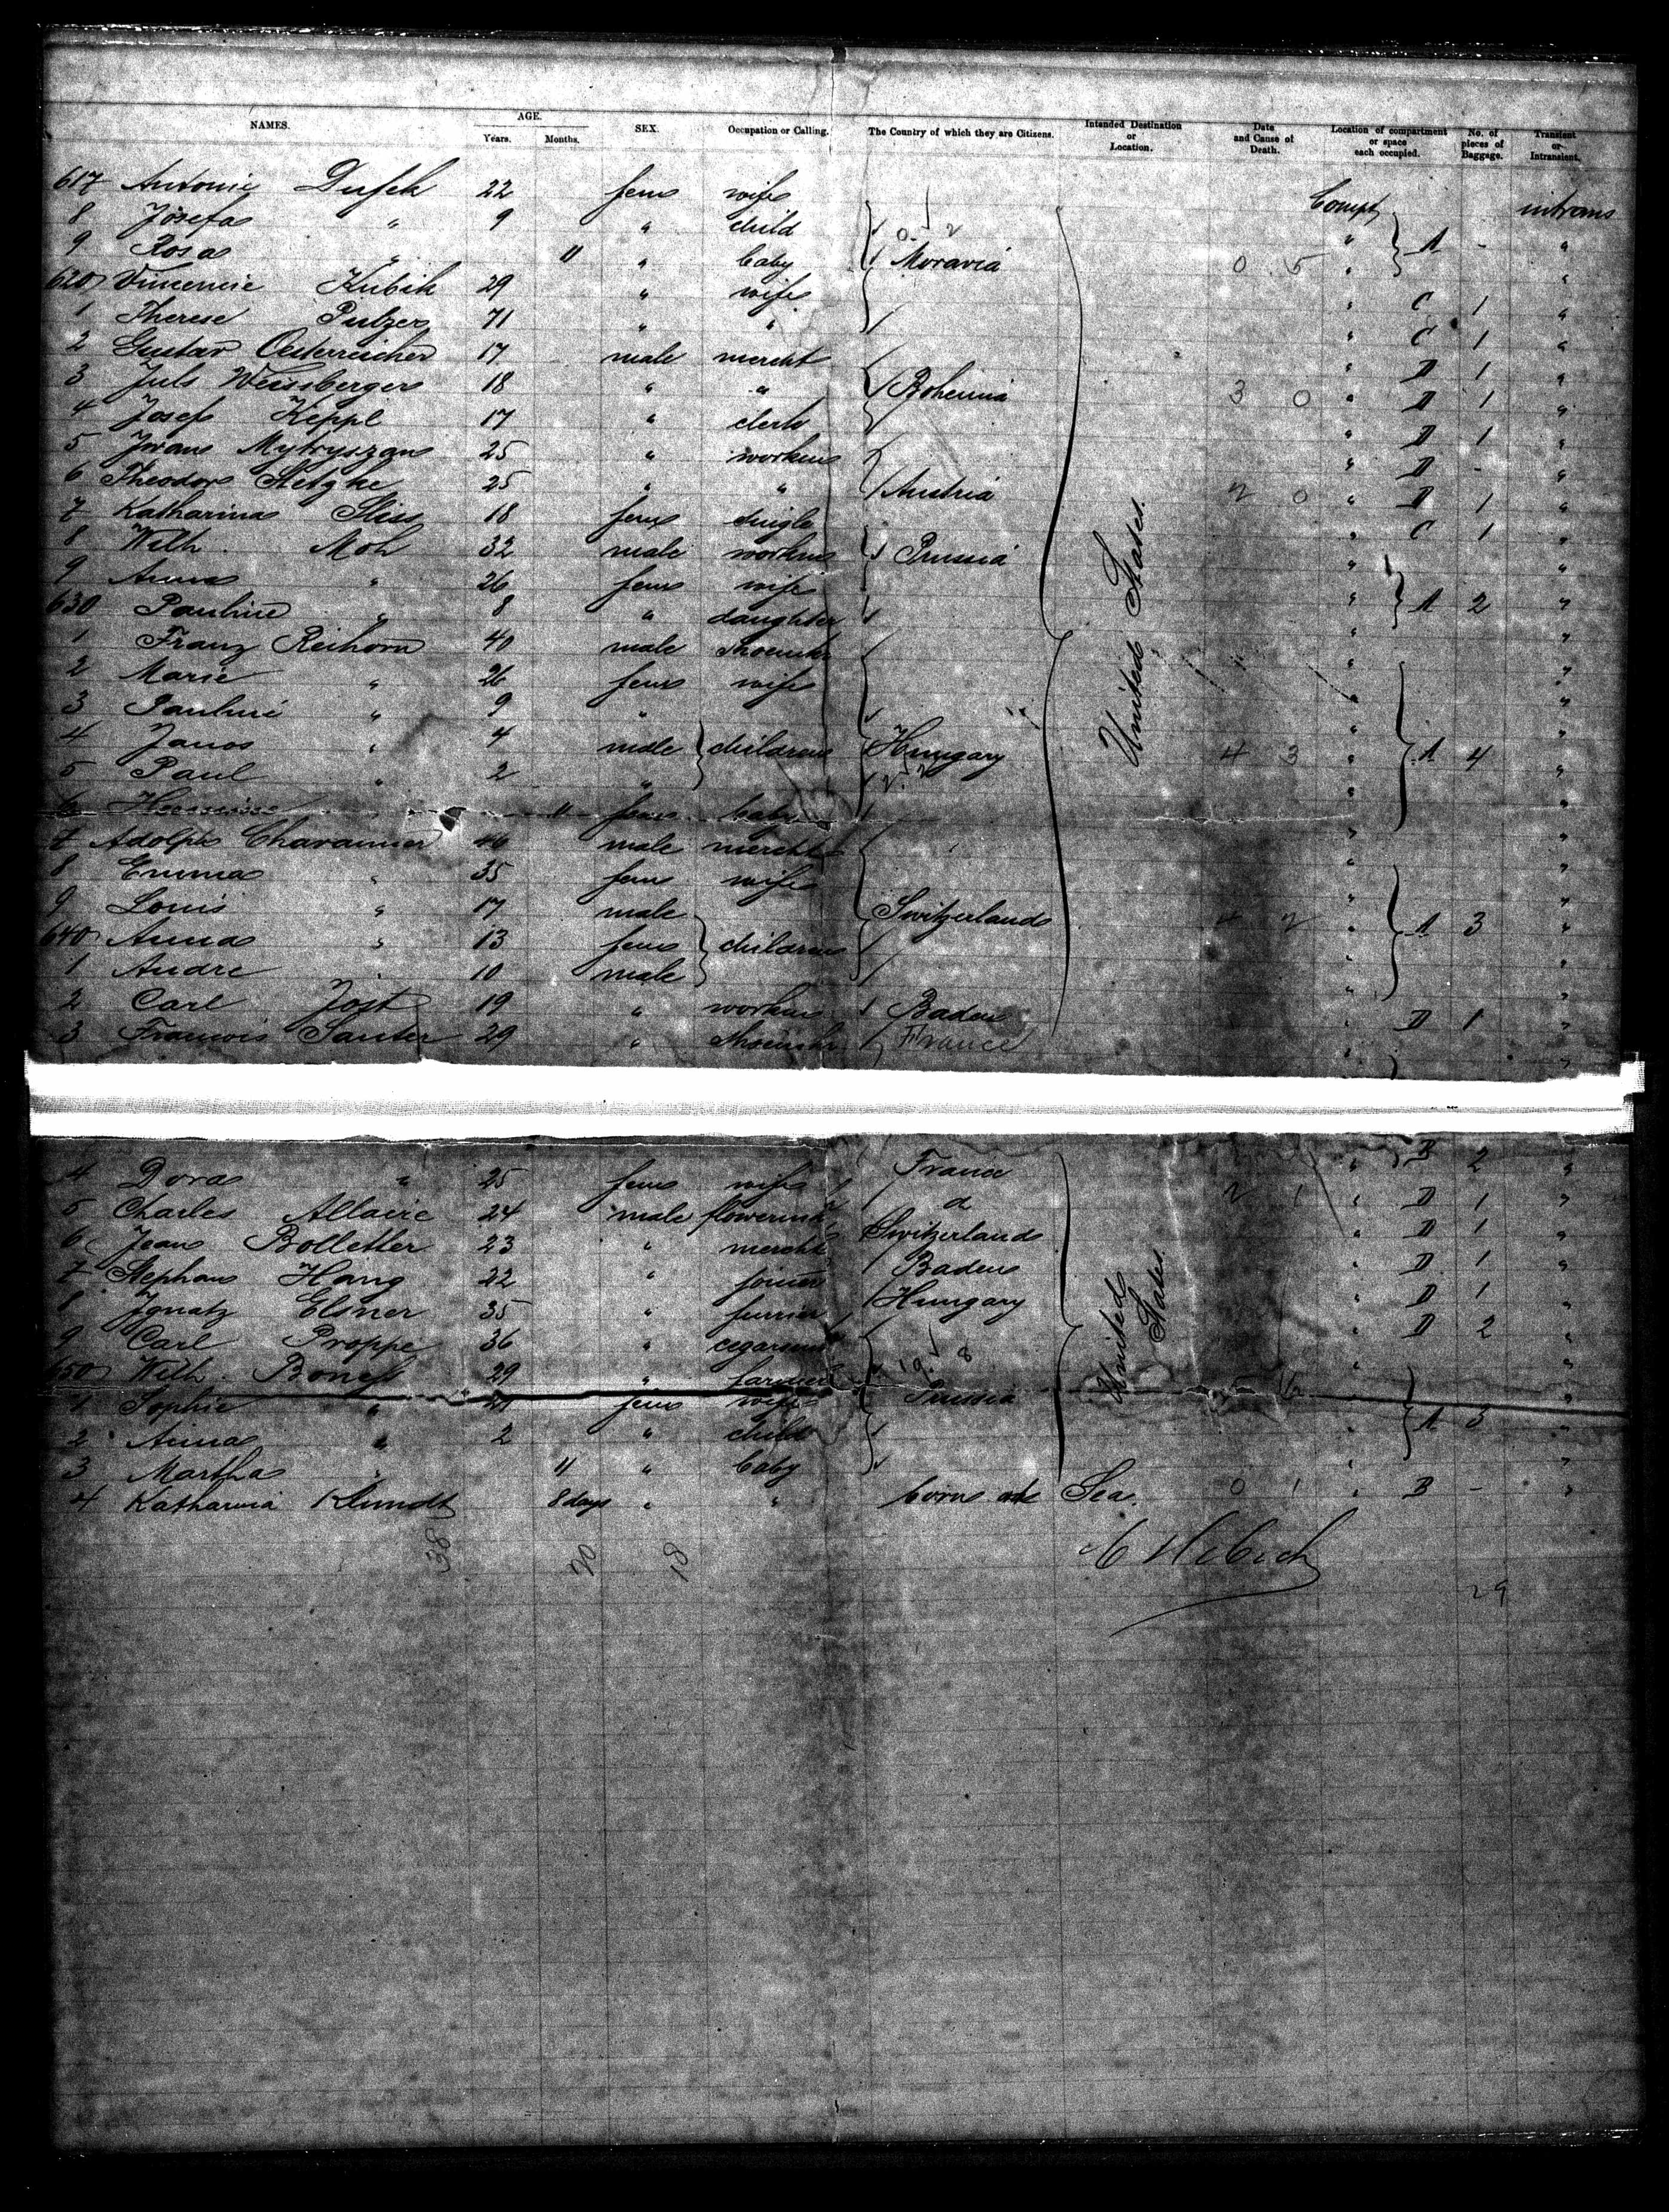 NAMES. AGE. Years. Months. SEX. Occupation or Calling. The Country of which they are Citizens. Intended Destination or Location. Date and Cause of Death. Location of compartment or space each occupied. No. of pieces of Baggage. Transient or Intransient.
617 Antonie Dusek 22 fem wife Compt intrans
8 Josefa " 9 " child 0 2 " A - "
9 Rosa " 11 " baby Moravia 0 5 " "
620 Vincencie Kubik 29 " wife " C 1 "
1 Therese Pulzer 71 " " " C 1 "
2 Gustav Oesterreicher 17 male mercht " D 1 "
3 Juls Weissberger 18 " " Bohemia 3 0 " D 1 "
4 Josef Keppl 17 " clerk " D 1 "
5 Iwan Mytryszan 25 " workm " D - "
6 Theodor Stetzke 25 " " Austria 2 0 " D 1 "
7 Katharina Sliss 18 fem single " C 1 "
8 Wilh. Moh 32 male workm Prussia " "
9 Anna " 26 fem wife " A 2 "
630 Pauline " 8 " daughter " "
1 Franz Reihorn 40 male shoemkr United States. " "
2 Marie " 26 fem wife " "
3 Pauline " 9 " " "
4 Janos " 4 male children Hungary 4 3 " A 4 "
5 Paul " 2 " 2 2 " "
6 11 fem baby "
7 Adolph Charannier 46 male mercht " "
8 Emma " 35 fem wife " "
9 Louis " 17 male Switzerland 4 2 " A 3 "
640 Anna " 13 fem children " "
1 Andre " 10 male " "
2 Carl Jost 19 " workm Baden D 1 "
3 Francois Sauter 29 " shoemkr France "
4 Dora " 25 fem wife France " B 2 "
5 Charles Allaire 24 male flowermk d 2 1 " D 1 "
6 Jean Bolletter 23 " mercht Switzerland " D 1 "
7 Stephan Hang 22 " joiner Baden " D 1 "
8 Ignatz Elsner 35 " furrier Hungary United States. " D 1 "
9 Carl Proppe 36 " cegarsm " D 2 "
650 Wilh. Boness 29 " farmer 10 8 " "
1 Sophie " 21 fem wife Prussia " "
2 Anna " 2 " child " A 3 "
3 Martha " 11 " baby " "
4 Katharina Klundt 8 days " " born at Sea. 0 1 " B - "
38 20 18
C Hebich
29